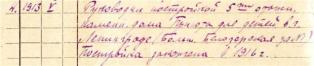 4. 1913 V Руководил постройкой 5ти этажн.
каменн. дома Приюта для детей в г.
Ленинграде, (Больш. Белозерская ул. №1)
Постройка закончена в 1916 г.